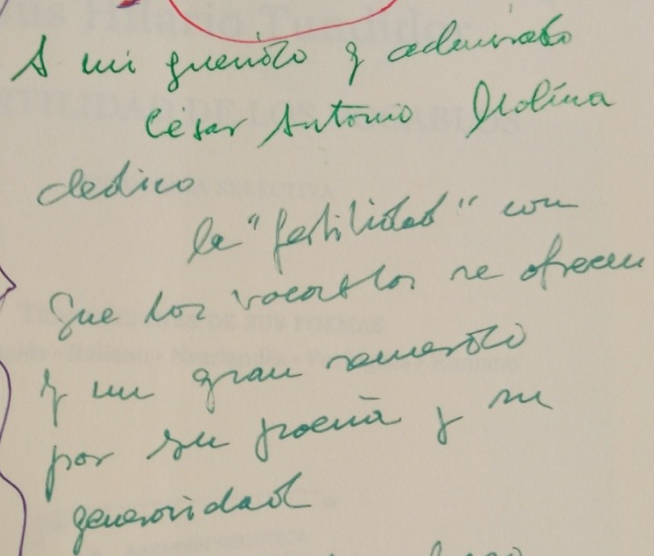 A mi querido y admirado
Cesar Antonio Molina
dedico
la "fertilidad" con
que los vocablos se ofrecen
y un gran
por su poesía y su
generosidad